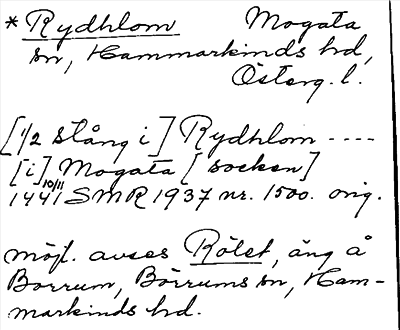 * Rydhlom Mogata
sn, Hammarkinds hd,
Österg. l.
[1/2 stång i] Rydhlom ----
[i] Mogata [socken]
1441 10/11 SMR 1937 nr. 1500. orig.
möjl. avses Rölet, äng å
Borrum, Börrums sn, Ham-
markinds hd.